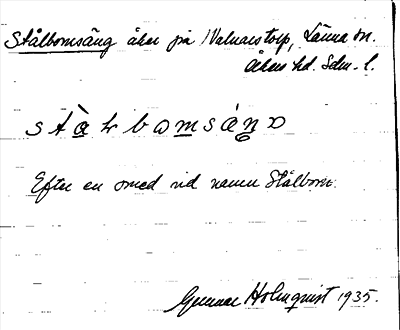 Stålbomsäng åker på Valnaestorp, Länna sn.
Åkers hd. Sdm. l.
stålbomsäŋ
Efter en smed vid namn Stålbom.
Gunnar Holmquist 1935.